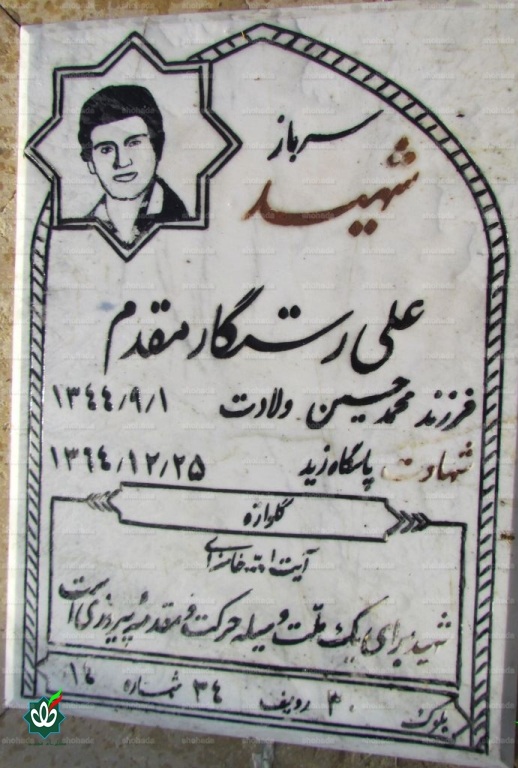 سرباز
شهید
علی رستگار مقدم
فرزند محمد حسین ولادت ۱۳۴۴/۹/۱
شهادت پاسگاه زید ۱۳۶۴/۱۲/۲۵
گلواژه
آیت الله خامنه‌ای
شهید برای یک ملت وسیله حرکت و مقدمه پیروزی است
بلوک ۳۰ ردیف ۳۴ شماره ۱۴